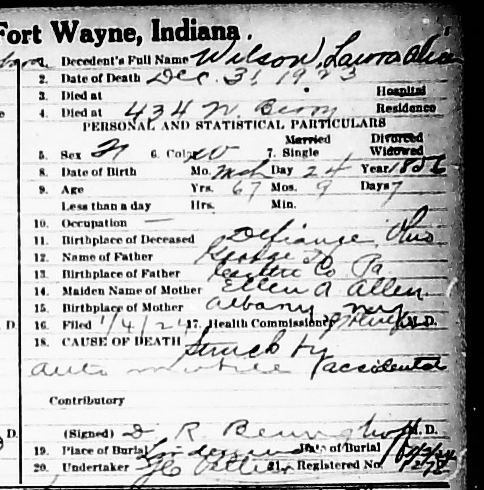 Fort Wayne, Indiana.
1. Decedent's Full Name Wilson, Laura
2. Date of Death Dec. 31 1923
3. Died at Hospital
4. Died at 434 W Berry Residence
PERSONAL AND STATISTICAL PARTICULARS
Married Divorced
5. Sex 6. Color W 7. Single Widowed
8. Date of Birth Mo. Mch Day 24 Year 1856
9. Age Yrs. 67 Mos. 9 Days 7
Less than a day Hrs. Min.
10. Occupation —
11. Birthplace of Deceased Defiance, Ohio
12. Name of Father George
13. Birthplace of Father Co Pa
14. Maiden Name of Mother Ellen A Allen
15. Birthplace of Mother Albany
D. 16. Filed 1/4/24 17. Health Commissioner M. D.
18. CAUSE OF DEATH Struck by
automobile (accidental
Contributory
D. (Signed) D R Benninghoff M. D.
19. Place of Burial Lindenwood Date of Burial
20. Undertaker 21. Registered No.